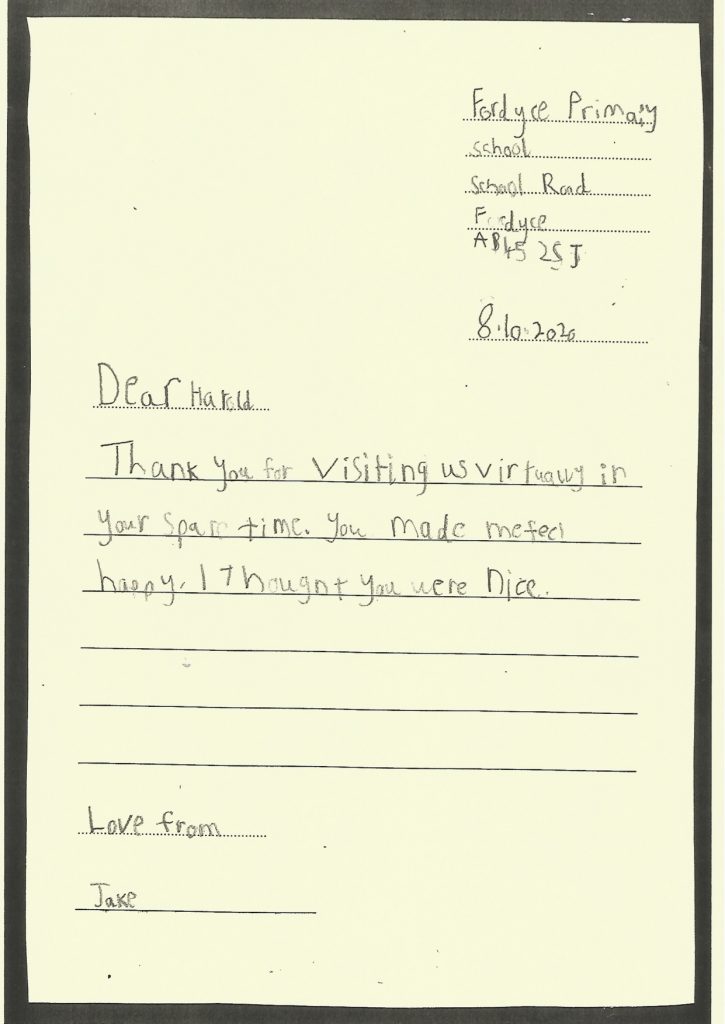 Fordyce Primary
school
School Road
Fordyce
AB45 2SJ
8.10.2020
Dear Harold
Thank you for visiting us virtually in
your spare time. You made me feel
happy. I thought you were nice.
Love from
Jake